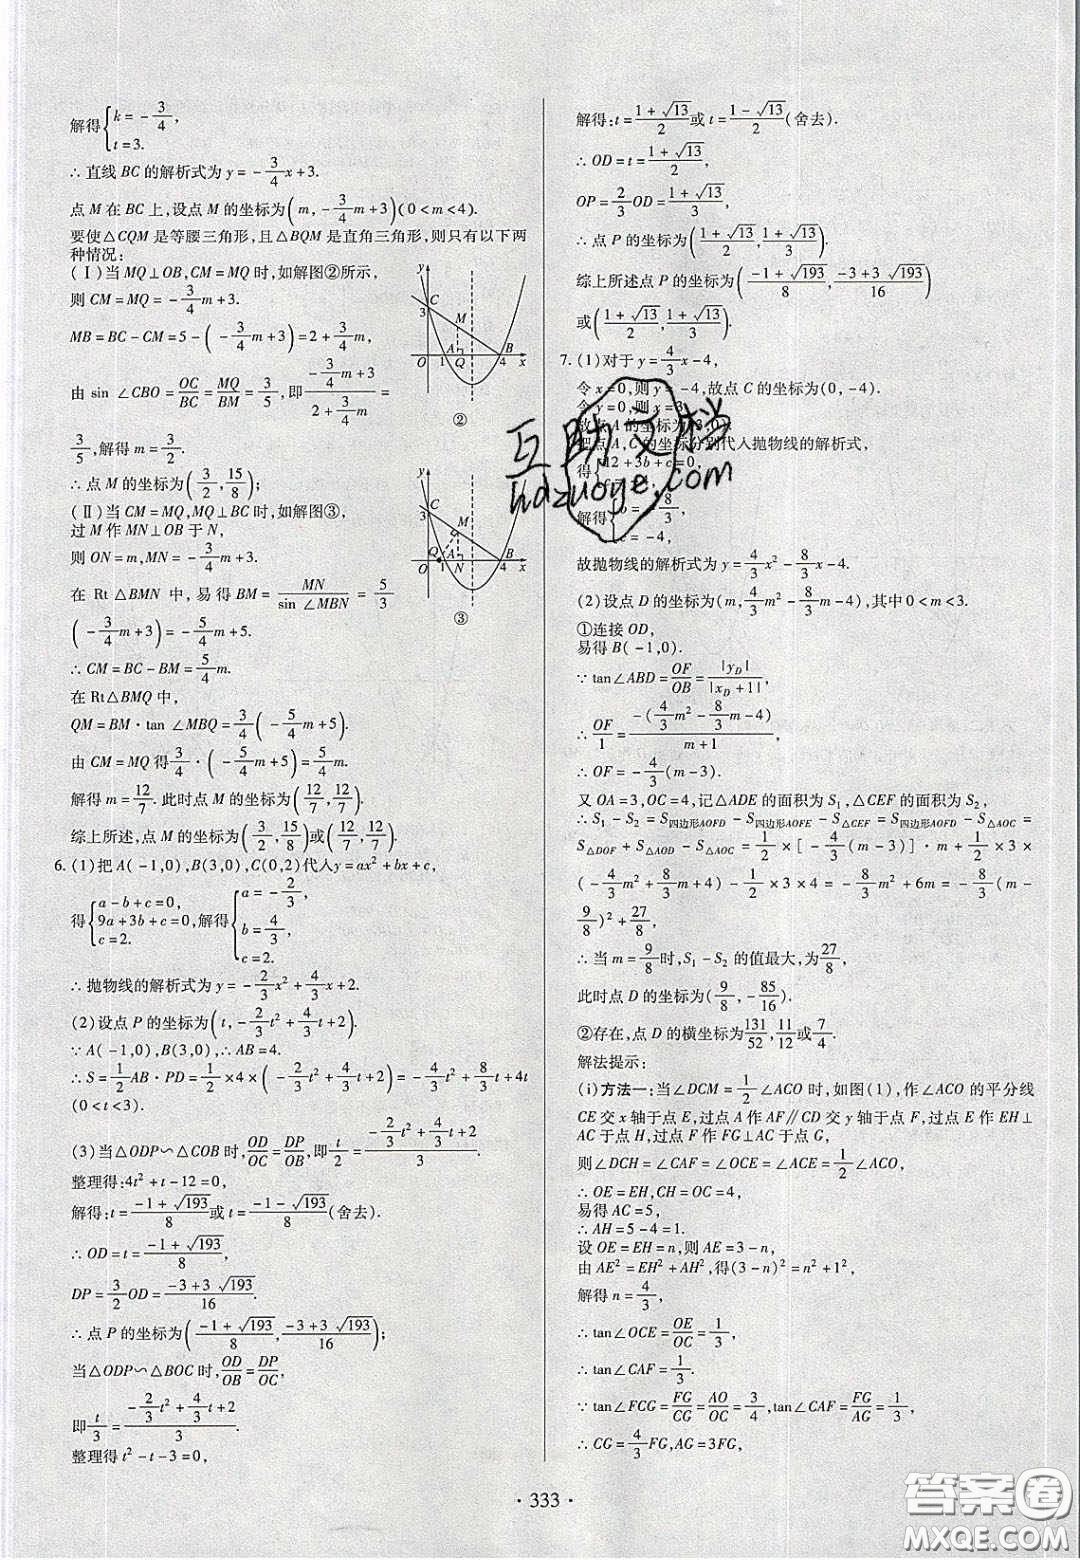 解得{k=-3/4,
t=3.
∴直线BC的解析式为y=-3/4x+3.
点M在BC上,设点M的坐标为(m,-3/4m+3)(0<m<4).
要使△CQM是等腰三角形,且△BQM是直角三角形,则只有以下两
种情况:
(Ⅰ)当MQ⊥OB,CM=MQ时,如解图②所示,
则CM=MQ=-3/4m+3.
MB=BC-CM=5-(-3/4m+3)=2+3/4m.
由sin ∠CBO=OC/BC=MQ/BM=3/5,即(-3/4m+3)/(2+3/4m)=
3/5,解得m=3/2.
∴点M的坐标为(3/2,15/8);
(Ⅱ)当CM=MQ,MQ⊥BC时,如解图③,
过M作MN⊥OB于N,
则ON=m,MN=-3/4m+3,
在Rt△BMN中,易得BM=MN/sin ∠MBN=5/3
(-3/4m+3)=-5/4m+5.
∴CM=BC-BM=5/4m.
在Rt△BMQ中,
QM=BM·tan ∠MBQ=3/4(-5/4m+5).
由CM=MQ得3/4·(-5/4m+5)=5/4m.
解得m=12/7.此时点M的坐标为(12/7,12/7).
综上所述,点M的坐标为(3/2,15/8)或(12/7,12/7).
y
C
3
M
A
B
O
1
Q
4
x
②
y
C
3
M
Q
A
B
O
1
N
4
x
③
6.(1)把A(-1,0),B(3,0),C(0,2)代入y=ax²+bx+c,
得{a-b+c=0,
9a+3b+c=0,
c=2.
解得{a=-2/3,
b=4/3,
c=2.
∴抛物线的解析式为y=-2/3x²+4/3x+2.
(2)设点P的坐标为(t,-2/3t²+4/3t+2).
∵A(-1,0),B(3,0),∴AB=4.
∴S=1/2AB·PD=1/2×4×(-2/3t²+4/3t+2)=-4/3t²+8/3t+4t
(0<t<3).
(3)当△ODP∽△COB时,OD/OC=DP/OB,即t/2=(-2/3t²+4/3t+2)/3.
整理得:4t²+t-12=0,
解得:t=(-1+√193)/8或t=(-1-√193)/8(舍去).
∴OD=t=(-1+√193)/8,
DP=3/2OD=(-3+3√193)/16.
∴点P的坐标为((-1+√193)/8,(-3+3√193)/16);
当△ODP∽△BOC时,OD/OB=DP/OC,
即t/3=(-2/3t²+4/3t+2)/3.
整理得t²-t-3=0,
解得:t=(1+√13)/2或t=(1-√13)/2(舍去).
∴OD=t=(1+√13)/2,
OP=2/3OD=(1+√13)/3,
∴点P的坐标为((1+√13)/2,(1+√13)/3).
综上所述点P的坐标为((-1+√193)/8,(-3+3√193)/16)
或((1+√13)/2,(1+√13)/3).
7.(1)对于y=4/3x-4,
令x=0,则y=-4,故点C的坐标为(0,-4).
令y=0,则x=3,
故点A的坐标为(3,0).
把点A,C的坐标分别代入抛物线的解析式,
得{12+3b+c=0,
解得{b=-8/3,
c=-4,
故抛物线的解析式为y=4/3x²-8/3x-4.
(2)设点D的坐标为(m,4/3m²-8/3m-4),其中0<m<3.
①连接OD,
易得B(-1,0).
∵tan∠ABD=OF/OB=|y_D|/|x_D+1|,
∴OF/1=-(4/3m²-8/3m-4)/(m+1),
∴OF=-4/3(m-3).
又OA=3,OC=4,记△ADE的面积为S₁,△CEF的面积为S₂,
∴S₁-S₂=S四边形AOFD-S四边形AOFE-S△CEF=S四边形AOFD-S△AOC=
S△DOF+S△AOD-S△AOC=1/2×[-4/3(m-3)]·m+1/2×3×
(-4/3m²+8/3m+4)-1/2×3×4=-8/3m²+6m=-8/3(m-
9/8)²+27/8.
∴当m=9/8时,S₁-S₂的值最大,为27/8.
此时点D的坐标为(9/8,-85/16).
②存在,点D的横坐标为131/52,11/12或7/4.
解法提示:
(ⅰ)方法一:当∠DCM=1/2∠ACO时,如图(1),作∠ACO的平分线
CE交x轴于点E,过点A作AF∥CD交y轴于点F,过点E作EH⊥
AC于点H,过点F作FG⊥AC于点G,
则∠DCH=∠CAF=∠OCE=∠ACE=1/2∠ACO,
∴OE=EH,CH=OC=4,
易得AC=5,
∴AH=5-4=1.
设OE=EH=n,则AE=3-n,
由AE²=EH²+AH²,得(3-n)²=n²+1²,
解得n=4/3,
∴tan∠OCE=OE/OC=1/3,
∴tan∠CAF=1/3.
∵tan∠FCG=FG/CG=AO/OC=3/4,tan∠CAF=FG/AG=1/3,
∴CG=4/3FG,AG=3FG,
·333·
互助文档
hdzuoye.com
答案圈
MXQE.COM